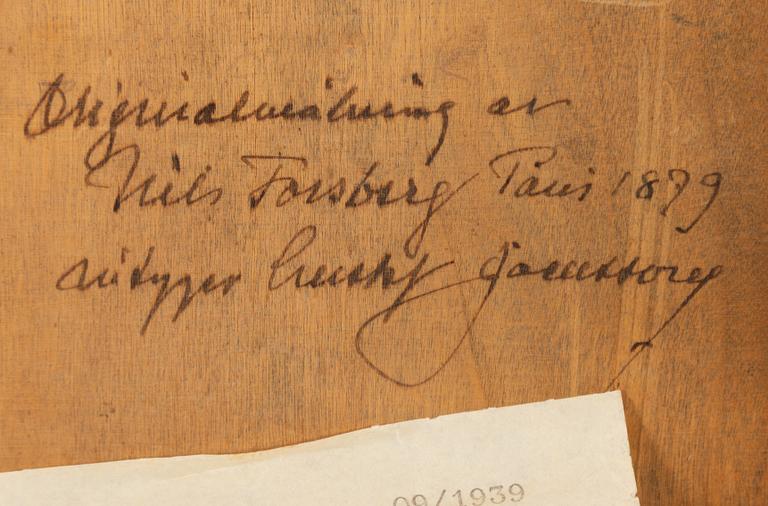 Originalmålning av
Nils Forsberg Paris 1879
intygar Gustaf
09/1939